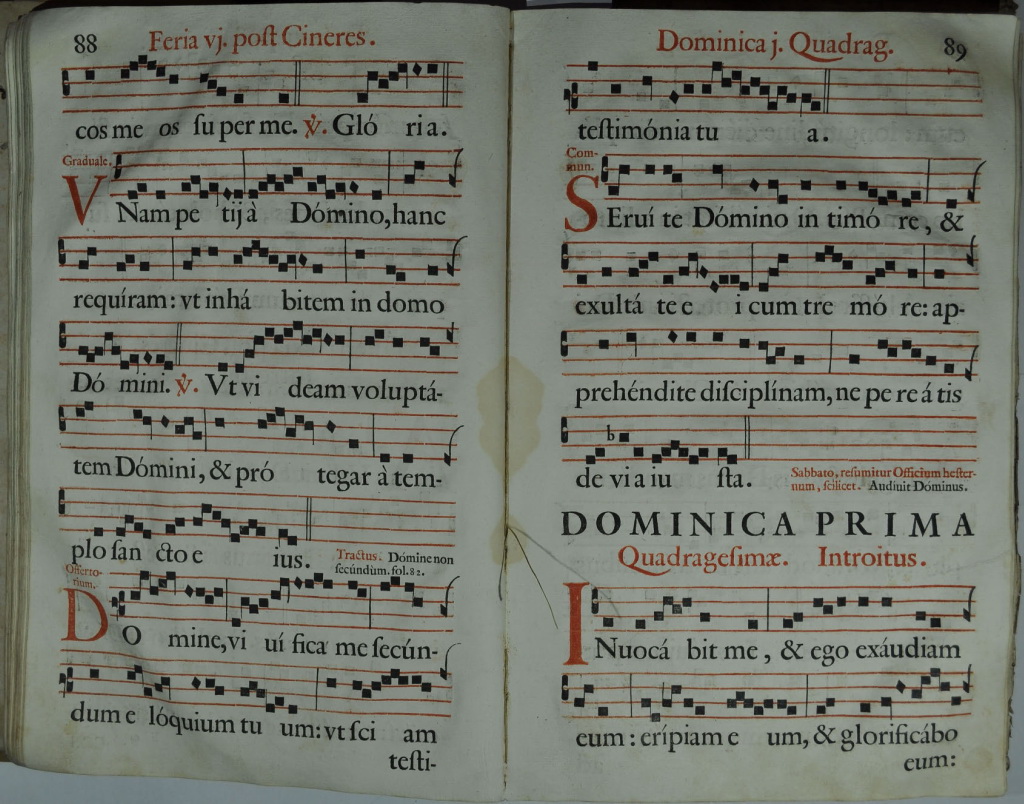 88 Feria vj. post Cineres.
cos me os su per me. ℣. Gló ri a.
Graduale.
VNam pe tij à Dómino, hanc
requíram: vt inhá bitem in domo
Dó mini. ℣. Vt vi deam voluptá-
tem Dómini, & pró tegar à tem-
plo san cto e ius. Tractus. Dómine non
secúndùm. fol. 82.
Offerto-
rium.
DO mine, vi uí fica me secún-
dum e lóquium tu um: vt sci am
testi-
Dominica j. Quadrag. 89
testimónia tu a.
Com-
mun.
SEruí te Dómino in timó re, &
exultá te e i cum tre mó re: ap-
prehéndite disciplínam, ne pe re á tis
de vi a iu sta. Sabbato, resumitur Officium hester-
num, scilicet. Audiuit Dóminus.
DOMINICA PRIMA
Quadragesimæ. Introitus.
INuocá bit me, & ego exáudiam
eum: erípiam e um, & glorificábo
eum: